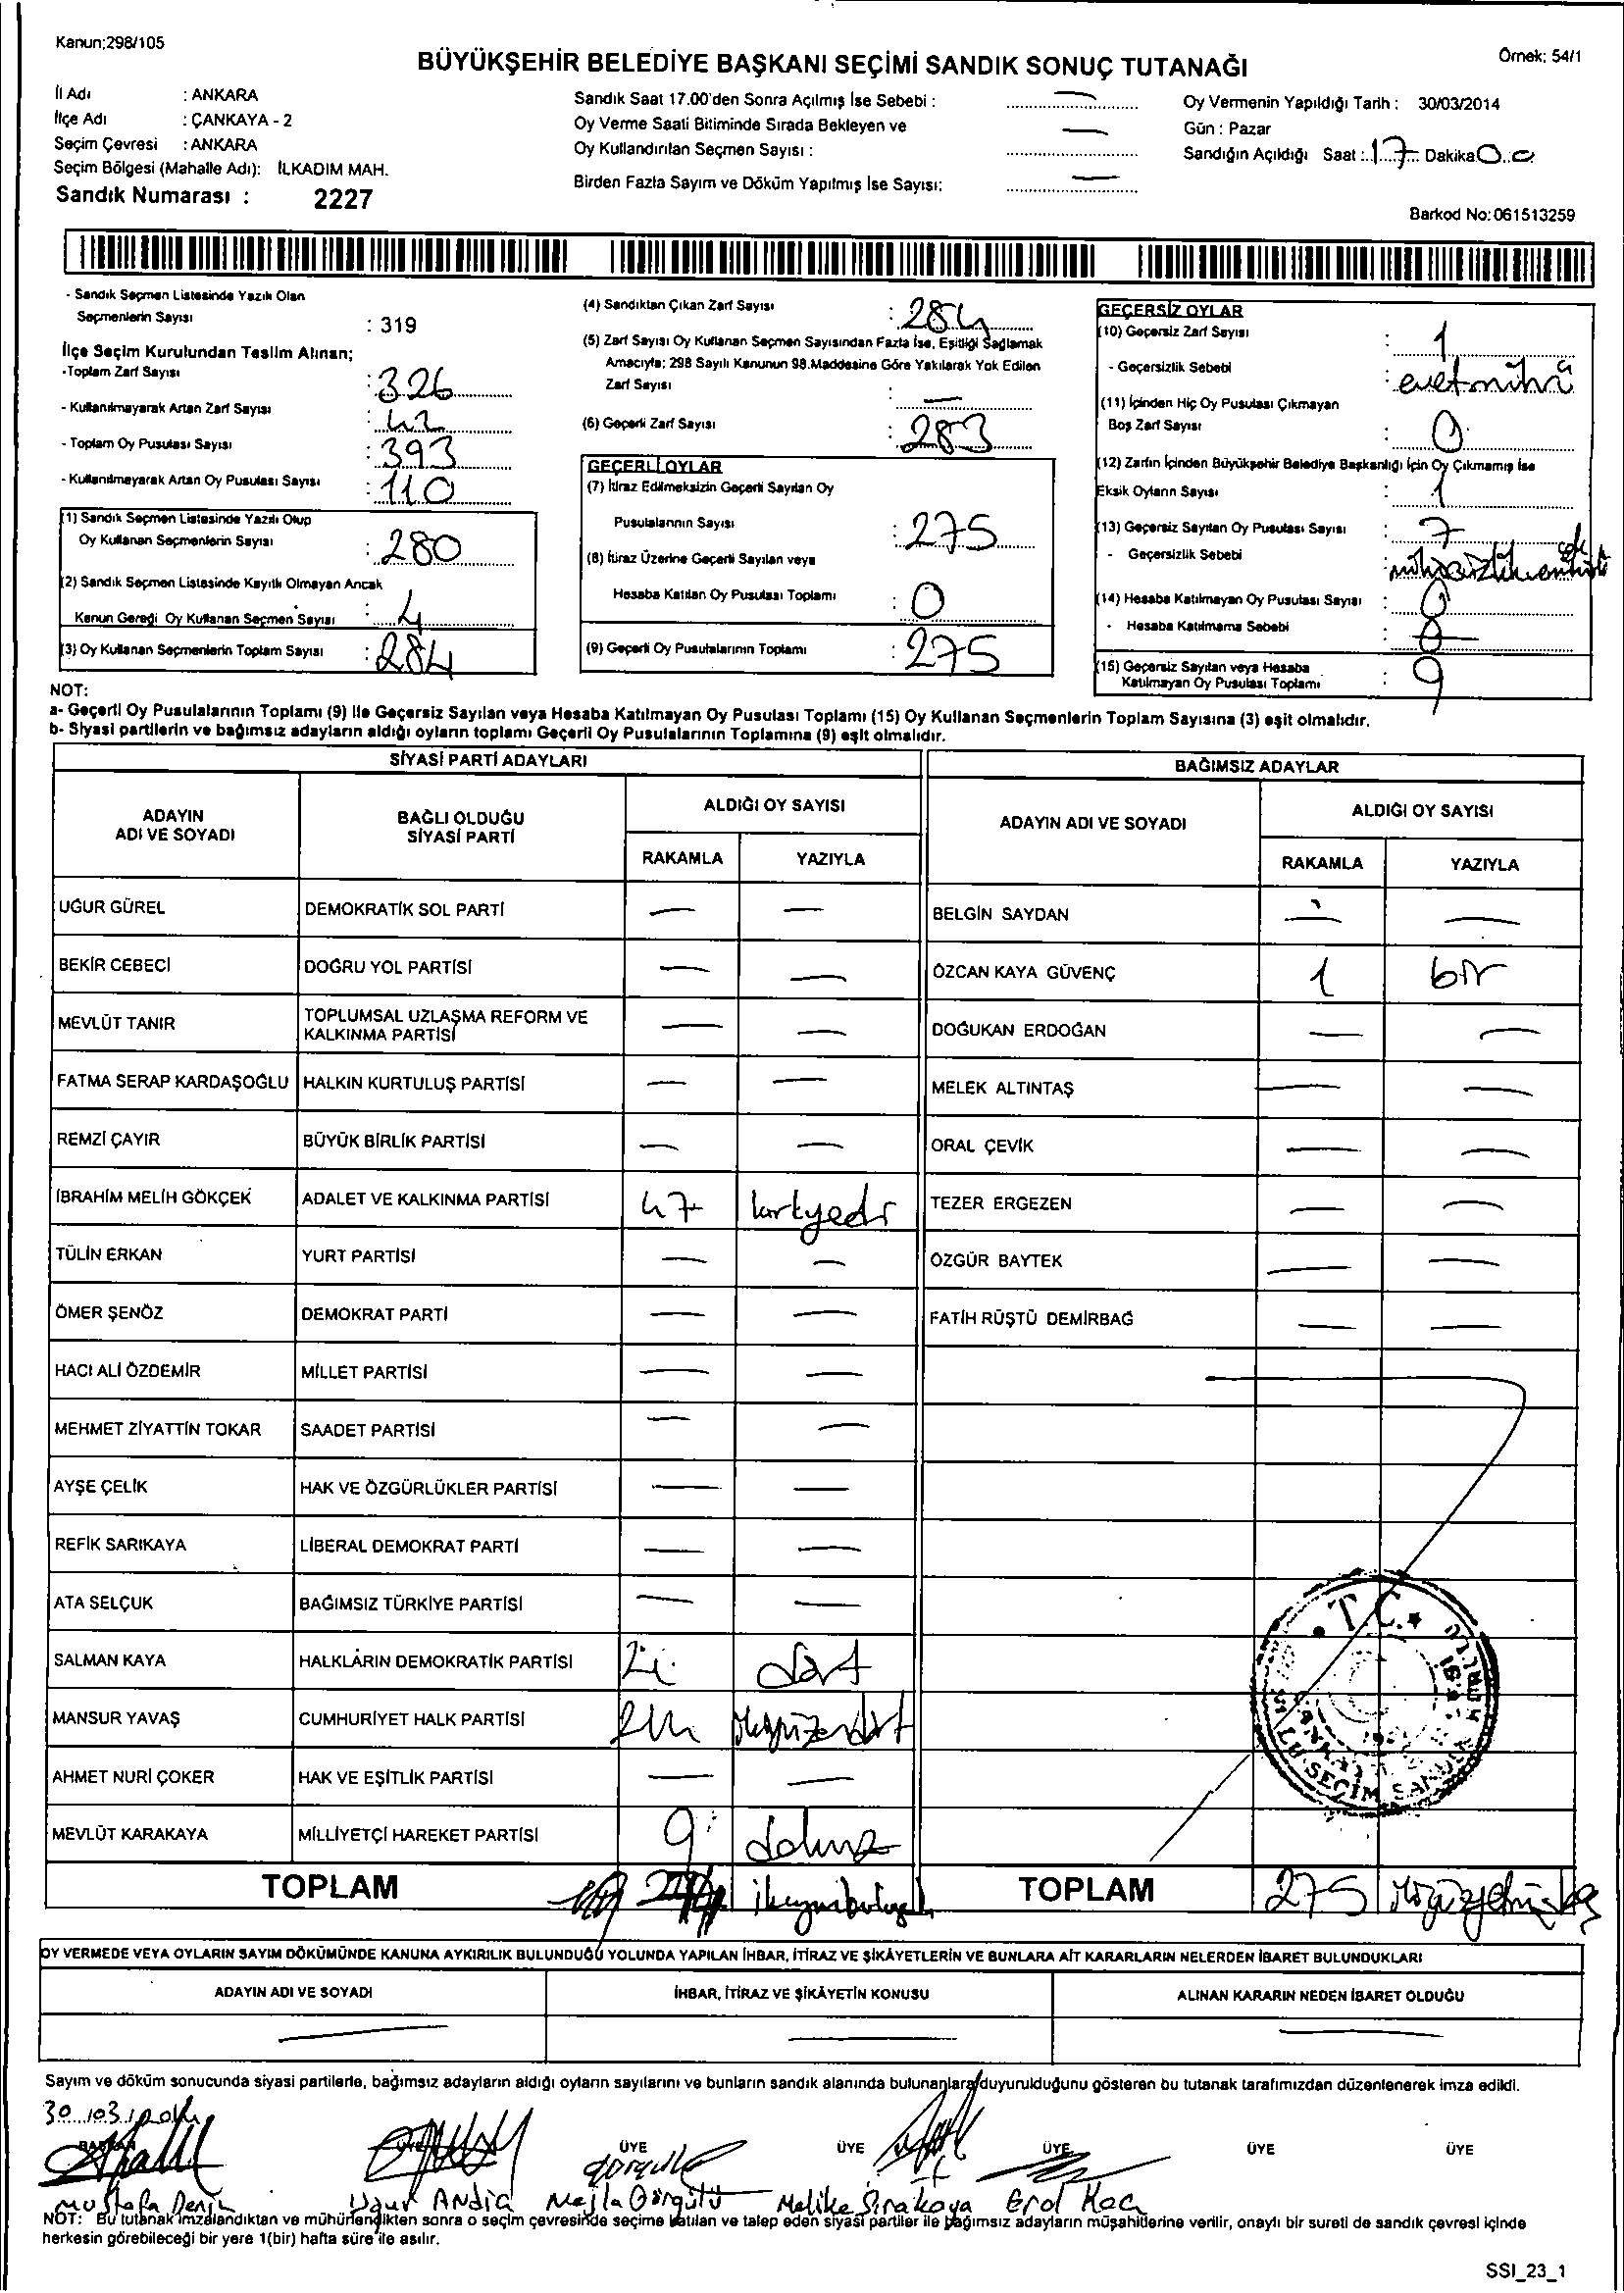 Kanun;298/105
BÜYÜKŞEHİR BELEDİYE BAŞKANI SEÇİMİ SANDIK SONUÇ TUTANAĞI
Örnek: 54/1
İl Adı : ANKARA
İlçe Adı : ÇANKAYA - 2
Seçim Çevresi : ANKARA
Seçim Bölgesi (Mahalle Adı): İLKADIM MAH.
Sandık Numarası : 2227
Sandık Saat 17.00'den Sonra Açılmış İse Sebebi : —
Oy Verme Saati Bitiminde Sırada Bekleyen ve
Oy Kullandırılan Seçmen Sayısı : —
Birden Fazla Sayım ve Döküm Yapılmış İse Sayısı: —
Oy Vermenin Yapıldığı Tarih : 30/03/2014
Gün : Pazar
Sandığın Açıldığı Saat : 17 Dakika 00
Barkod No:061513259
- Sandık Seçmen Listesinde Yazılı Olan
Seçmenlerin Sayısı : 319
İlçe Seçim Kurulundan Teslim Alınan;
-Toplam Zarf Sayısı : 326
- Kullanılmayarak Artan Zarf Sayısı : 42
- Toplam Oy Pusulası Sayısı : 393
- Kullanılmayarak Artan Oy Pusulası Sayısı : 110
(1) Sandık Seçmen Listesinde Yazılı Olup
Oy Kullanan Seçmenlerin Sayısı : 280
(2) Sandık Seçmen Listesinde Kayıtlı Olmayan Ancak
Kanun Gereği Oy Kullanan Seçmen Sayısı : 4
(3) Oy Kullanan Seçmenlerin Toplam Sayısı : 284
(4) Sandıktan Çıkan Zarf Sayısı : 284
(5) Zarf Sayısı Oy Kullanan Seçmen Sayısından Fazla İse, Eşitliği Sağlamak
Amacıyla; 298 Sayılı Kanunun 98.Maddesine Göre Yakılarak Yok Edilen
Zarf Sayısı : —
(6) Geçerli Zarf Sayısı : 283
GEÇERLİ OYLAR
(7) İtiraz Edilmeksizin Geçerli Sayılan Oy
Pusulalarının Sayısı : 275
(8) İtiraz Üzerine Geçerli Sayılan veya
Hesaba Katılan Oy Pusulası Toplamı : 0
(9) Geçerli Oy Pusulalarının Toplamı : 275
GEÇERSİZ OYLAR
(10) Geçersiz Zarf Sayısı : 1
- Geçersizlik Sebebi : evet mührü
(11) İçinden Hiç Oy Pusulası Çıkmayan
Boş Zarf Sayısı : 0
(12) Zarfın İçinden Büyükşehir Belediye Başkanlığı İçin Oy Çıkmamış İse
Eksik Oyların Sayısı : 1
(13) Geçersiz Sayılan Oy Pusulası Sayısı : 7
- Geçersizlik Sebebi :
(14) Hesaba Katılmayan Oy Pusulası Sayısı : 0
- Hesaba Katılmama Sebebi : 0
(15) Geçersiz Sayılan veya Hesaba
Katılmayan Oy Pusulası Toplamı : 9
NOT:
a- Geçerli Oy Pusulalarının Toplamı (9) ile Geçersiz Sayılan veya Hesaba Katılmayan Oy Pusulası Toplamı (15) Oy Kullanan Seçmenlerin Toplam Sayısına (3) eşit olmalıdır.
b- Siyasi partilerin ve bağımsız adayların aldığı oyların toplamı Geçerli Oy Pusulalarının Toplamına (9) eşit olmalıdır.
SİYASİ PARTİ ADAYLARI
BAĞIMSIZ ADAYLAR
ADAYIN ADI VE SOYADI
BAĞLI OLDUĞU SİYASİ PARTİ
ALDIĞI OY SAYISI
RAKAMLA YAZIYLA
ADAYIN ADI VE SOYADI
ALDIĞI OY SAYISI
RAKAMLA YAZIYLA
UĞUR GÜREL DEMOKRATİK SOL PARTİ — —
BELGİN SAYDAN — —
BEKİR CEBECİ DOĞRU YOL PARTİSİ — —
ÖZCAN KAYA GÜVENÇ 1 bir
MEVLÜT TANIR TOPLUMSAL UZLAŞMA REFORM VE KALKINMA PARTİSİ — —
DOĞUKAN ERDOĞAN — —
FATMA SERAP KARDAŞOĞLU HALKIN KURTULUŞ PARTİSİ — —
MELEK ALTINTAŞ — —
REMZİ ÇAYIR BÜYÜK BİRLİK PARTİSİ — —
ORAL ÇEVİK — —
İBRAHİM MELİH GÖKÇEK ADALET VE KALKINMA PARTİSİ 47 kırkyedi
TEZER ERGEZEN — —
TÜLİN ERKAN YURT PARTİSİ — —
ÖZGÜR BAYTEK — —
ÖMER ŞENÖZ DEMOKRAT PARTİ — —
FATİH RÜŞTÜ DEMİRBAĞ — —
HACI ALİ ÖZDEMİR MİLLET PARTİSİ — —
MEHMET ZİYATTİN TOKAR SAADET PARTİSİ — —
AYŞE ÇELİK HAK VE ÖZGÜRLÜKLER PARTİSİ — —
REFİK SARIKAYA LİBERAL DEMOKRAT PARTİ — —
ATA SELÇUK BAĞIMSIZ TÜRKİYE PARTİSİ — —
SALMAN KAYA HALKLARIN DEMOKRATİK PARTİSİ 4 dört
MANSUR YAVAŞ CUMHURİYET HALK PARTİSİ
AHMET NURİ ÇOKER HAK VE EŞİTLİK PARTİSİ — —
MEVLÜT KARAKAYA MİLLİYETÇİ HAREKET PARTİSİ 9 dokuz
T.C.
TOPLAM
TOPLAM 275
OY VERMEDE VEYA OYLARIN SAYIM DÖKÜMÜNDE KANUNA AYKIRILIK BULUNDUĞU YOLUNDA YAPILAN İHBAR, İTİRAZ VE ŞİKÂYETLERİN VE BUNLARA AİT KARARLARIN NELERDEN İBARET BULUNDUKLARI
ADAYIN ADI VE SOYADI İHBAR, İTİRAZ VE ŞİKÂYETİN KONUSU ALINAN KARARIN NEDEN İBARET OLDUĞU
— — —
Sayım ve döküm sonucunda siyasi partilerle, bağımsız adayların aldığı oyların sayılarını ve bunların sandık alanında bulunanlara duyurulduğunu gösteren bu tutanak tarafımızdan düzenlenerek imza edildi.
30/03/2014
BAŞKAN ÜYE ÜYE ÜYE ÜYE ÜYE ÜYE
Mustafa Deniz Uğur Andiç Nejla Görgülü Melike Sırakaya Erol Koç
NOT: Bu tutanak imzalandıktan ve mühürlendikten sonra o seçim çevresinde seçime katılan ve talep eden siyasi partiler ile bağımsız adayların müşahitlerine verilir, onaylı bir sureti de sandık çevresi içinde
herkesin görebileceği bir yere 1(bir) hafta süre ile asılır.
SSI_23_1